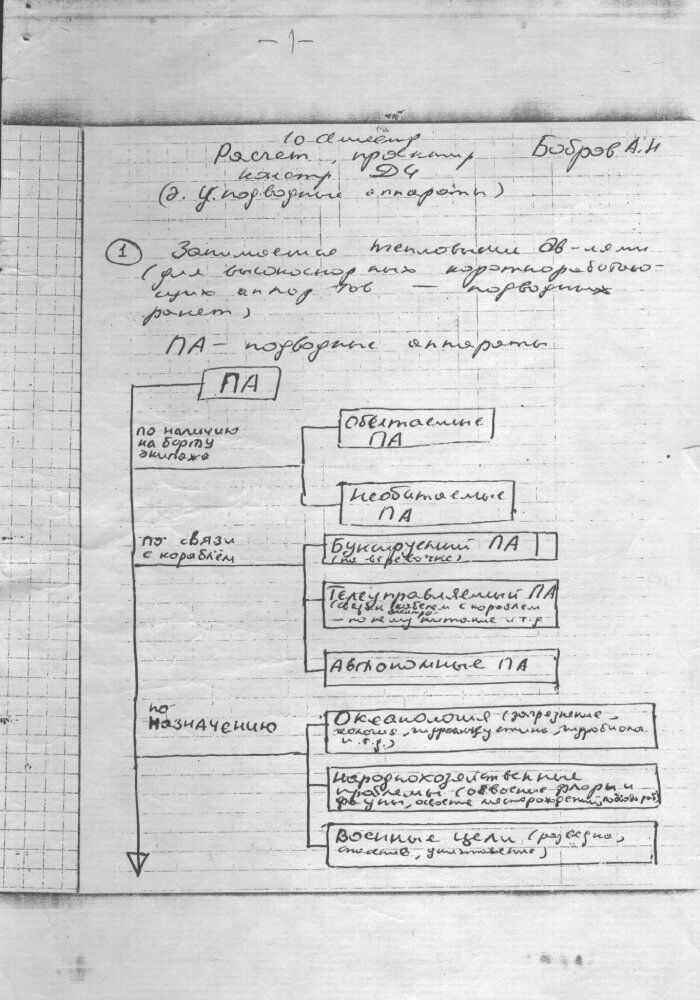 — 1 —
10 семестр
Расчет, проектир
констр. ДУ
Бобров А.Н
(Э. У. подводные аппараты)
1 Занимаемся тепловыми дв-лями
(для высокоскор ных короткоработаю-
щих аппар тов — подводных
ракет)
ПА — подводные аппараты
ПА
по наличию
на борту
экипажа
Обитаемые
ПА
Необитаемые
ПА
по связи
с кораблём
Буксируемый ПА
(на верёвочке)
Телеуправляемый ПА
(связан кабелем с кораблем
электро-
— по нему питание и т.д
Автономные ПА
по
назначению
Океанология (загрязнение,
гидроакустика, гидробиол.
и т.д.)
Народнохозяйственные
проблемы (освоение флоры и
фауны, месторождений,
Военные цели (разведка,
уничтожение)